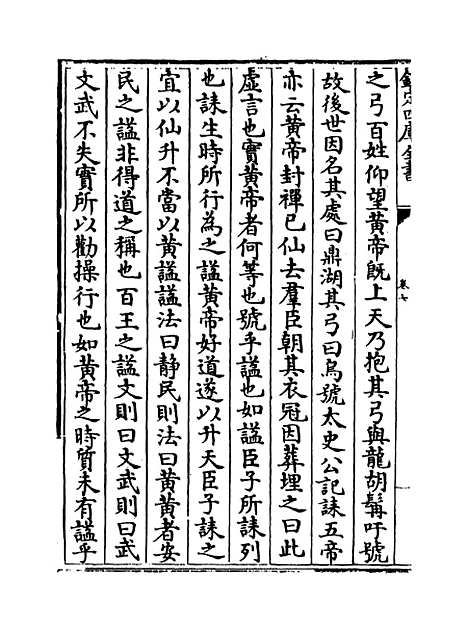 欽定四庫全書
卷七
之弓百姓仰望黃帝既上天乃抱其弓與龍胡髯吁號
故後世因名其處曰鼎湖其弓曰烏號太史公記誄五帝
亦云黃帝封禪已仙去羣臣朝其衣冠因葬埋之曰此
虛言也實黃帝者何等也號乎謚也如謚臣子所誄列
也誄生時所行為之謚黃帝好道遂以升天臣子誄之
宜以仙升不當以黃謚謚法曰静民則法曰黃黃者安
民之謚非得道之稱也百王之謚文則曰文武則曰武
文武不失實所以勸操行也如黃帝之時質未有謚乎